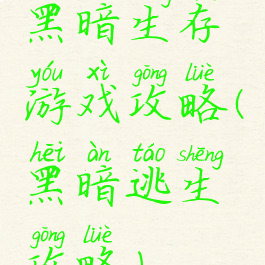 黑暗生存
yóu xì gōng lüè
游戏攻略(
hēi àn táo shēng
黑暗逃生
gōng lüè
攻略)